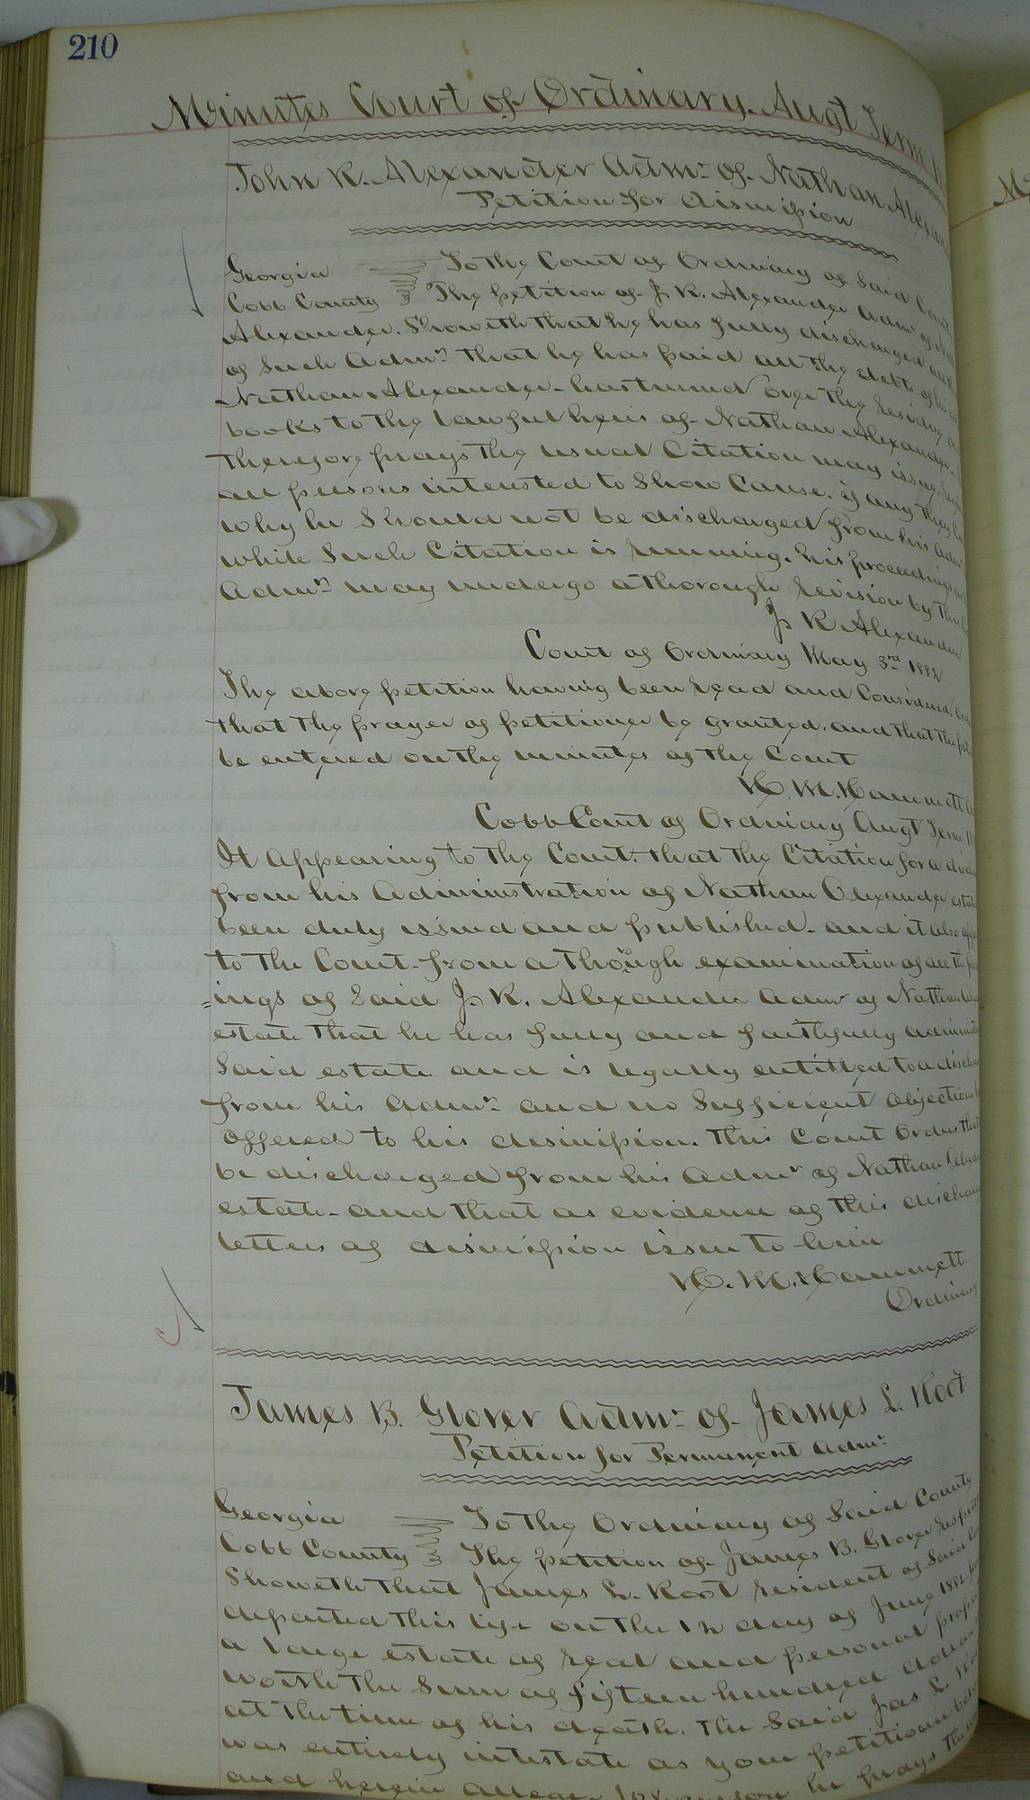 210
Minutes Court of Ordinary. Augt Term
John R. Alexander Admr of Nathan
Petition for dismission
Georgia To the Court of Ordinary of Said
Cobb County The petition of J. R. Alexander Admr of
Alexander. Showeth that he has fully discharged
of Such Admn that he has paid all the debts of
Nathan Alexander has turned over the residue
books to the lawful heirs of Nathan Alexander.
therefore prays the usual Citation may issue
all persons interested to Show Cause. if any they
why he Should not be discharged from his
while Such Citation is running. his proceedings
Admn may undergo a thorough revision by
J R Alexander
Court of Ordinary May 3rd 1882
The above petition having been read and Considered
that the prayer of petitioner be granted. and that the
be entered on the minutes of the Court
H. M. Hammett
Cobb Court of Ordinary Augt Term
It appearing to the Court. that the Citation for a
from his administration of Nathan Alexander
been duly issued and published. and it also
to the Court from a thorough examination of all the
=ings of Said J. R. Alexander Admr of Nathan
estate that he has fully and faithfully
Said estate and is legally entitled to a
from his Admn and no Sufficient objection
offered to his dismission. This Court orders that
be discharged from his Admn of Nathan
estate and that as evidence of this
letters of dismission issue to him
H. M. Hammett
Ordinary
James B. Glover Admr of James L. Root
Petition for Permanent Admn
Georgia To the Ordinary of Said County
Cobb County The petition of James B. Glover
Showeth that James L. Root resident of Said
departed this life on the 12 day of June 1882
a large estate of real and personal
worth the Sum of fifteen hundred dollars
at the time of his death. The Said Jas L.
was entirely intestate as your petitioner
and herein he prays